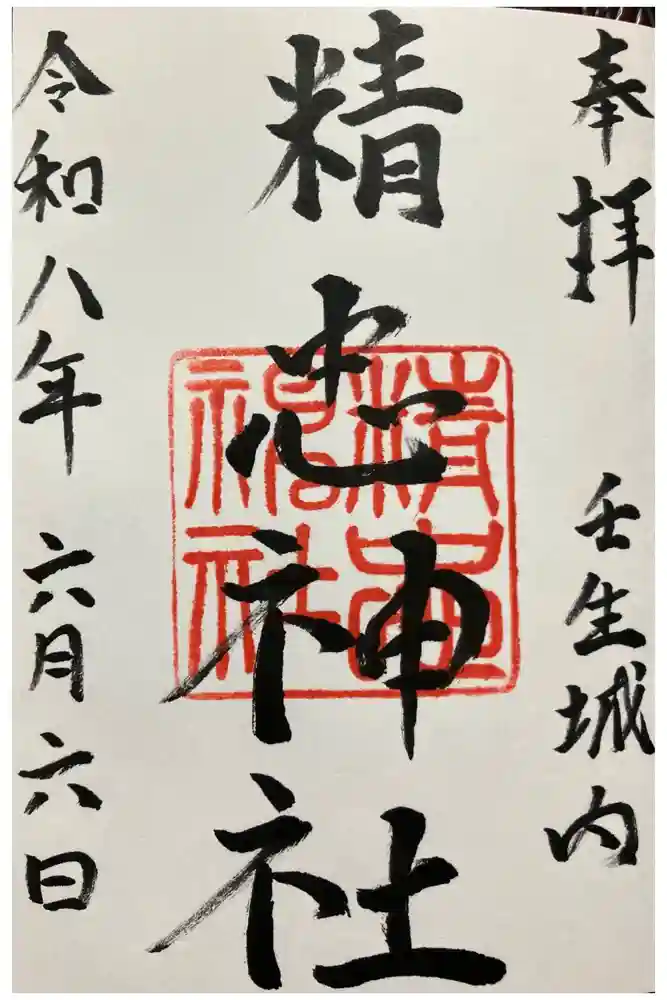 奉拝
壬生城内
精忠神社
令和八年
六月六日